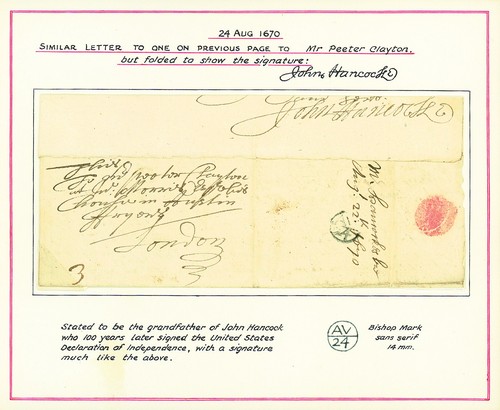 24 AUG 1670
SIMILAR LETTER TO ONE ON PREVIOUS PAGE TO Mr Peeter Clayton,
but folded to show the signature:
John Hancock
John Hancock
Clayton
Austin
ffryors
London
3
Aug. 22. 1670
Stated to be the grandfather of John Hancock
who 100 years later signed the United States
Declaration of Independence, with a signature
much like the above.
AV
24
Bishop Mark
sans serif
14 mm.